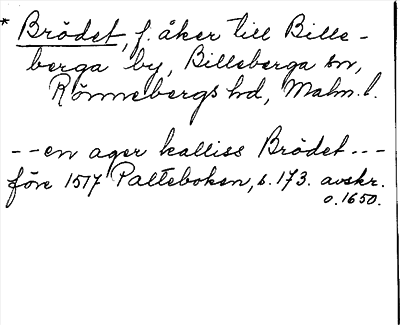 * Brödet, f. åker till Bille-
berga by, Billeberga sn,
Rönnebergs hd, Malm. l.
--en ager kalliss Brödet---
före 1517 Palteboken, s. 173. avskr.
o. 1650.